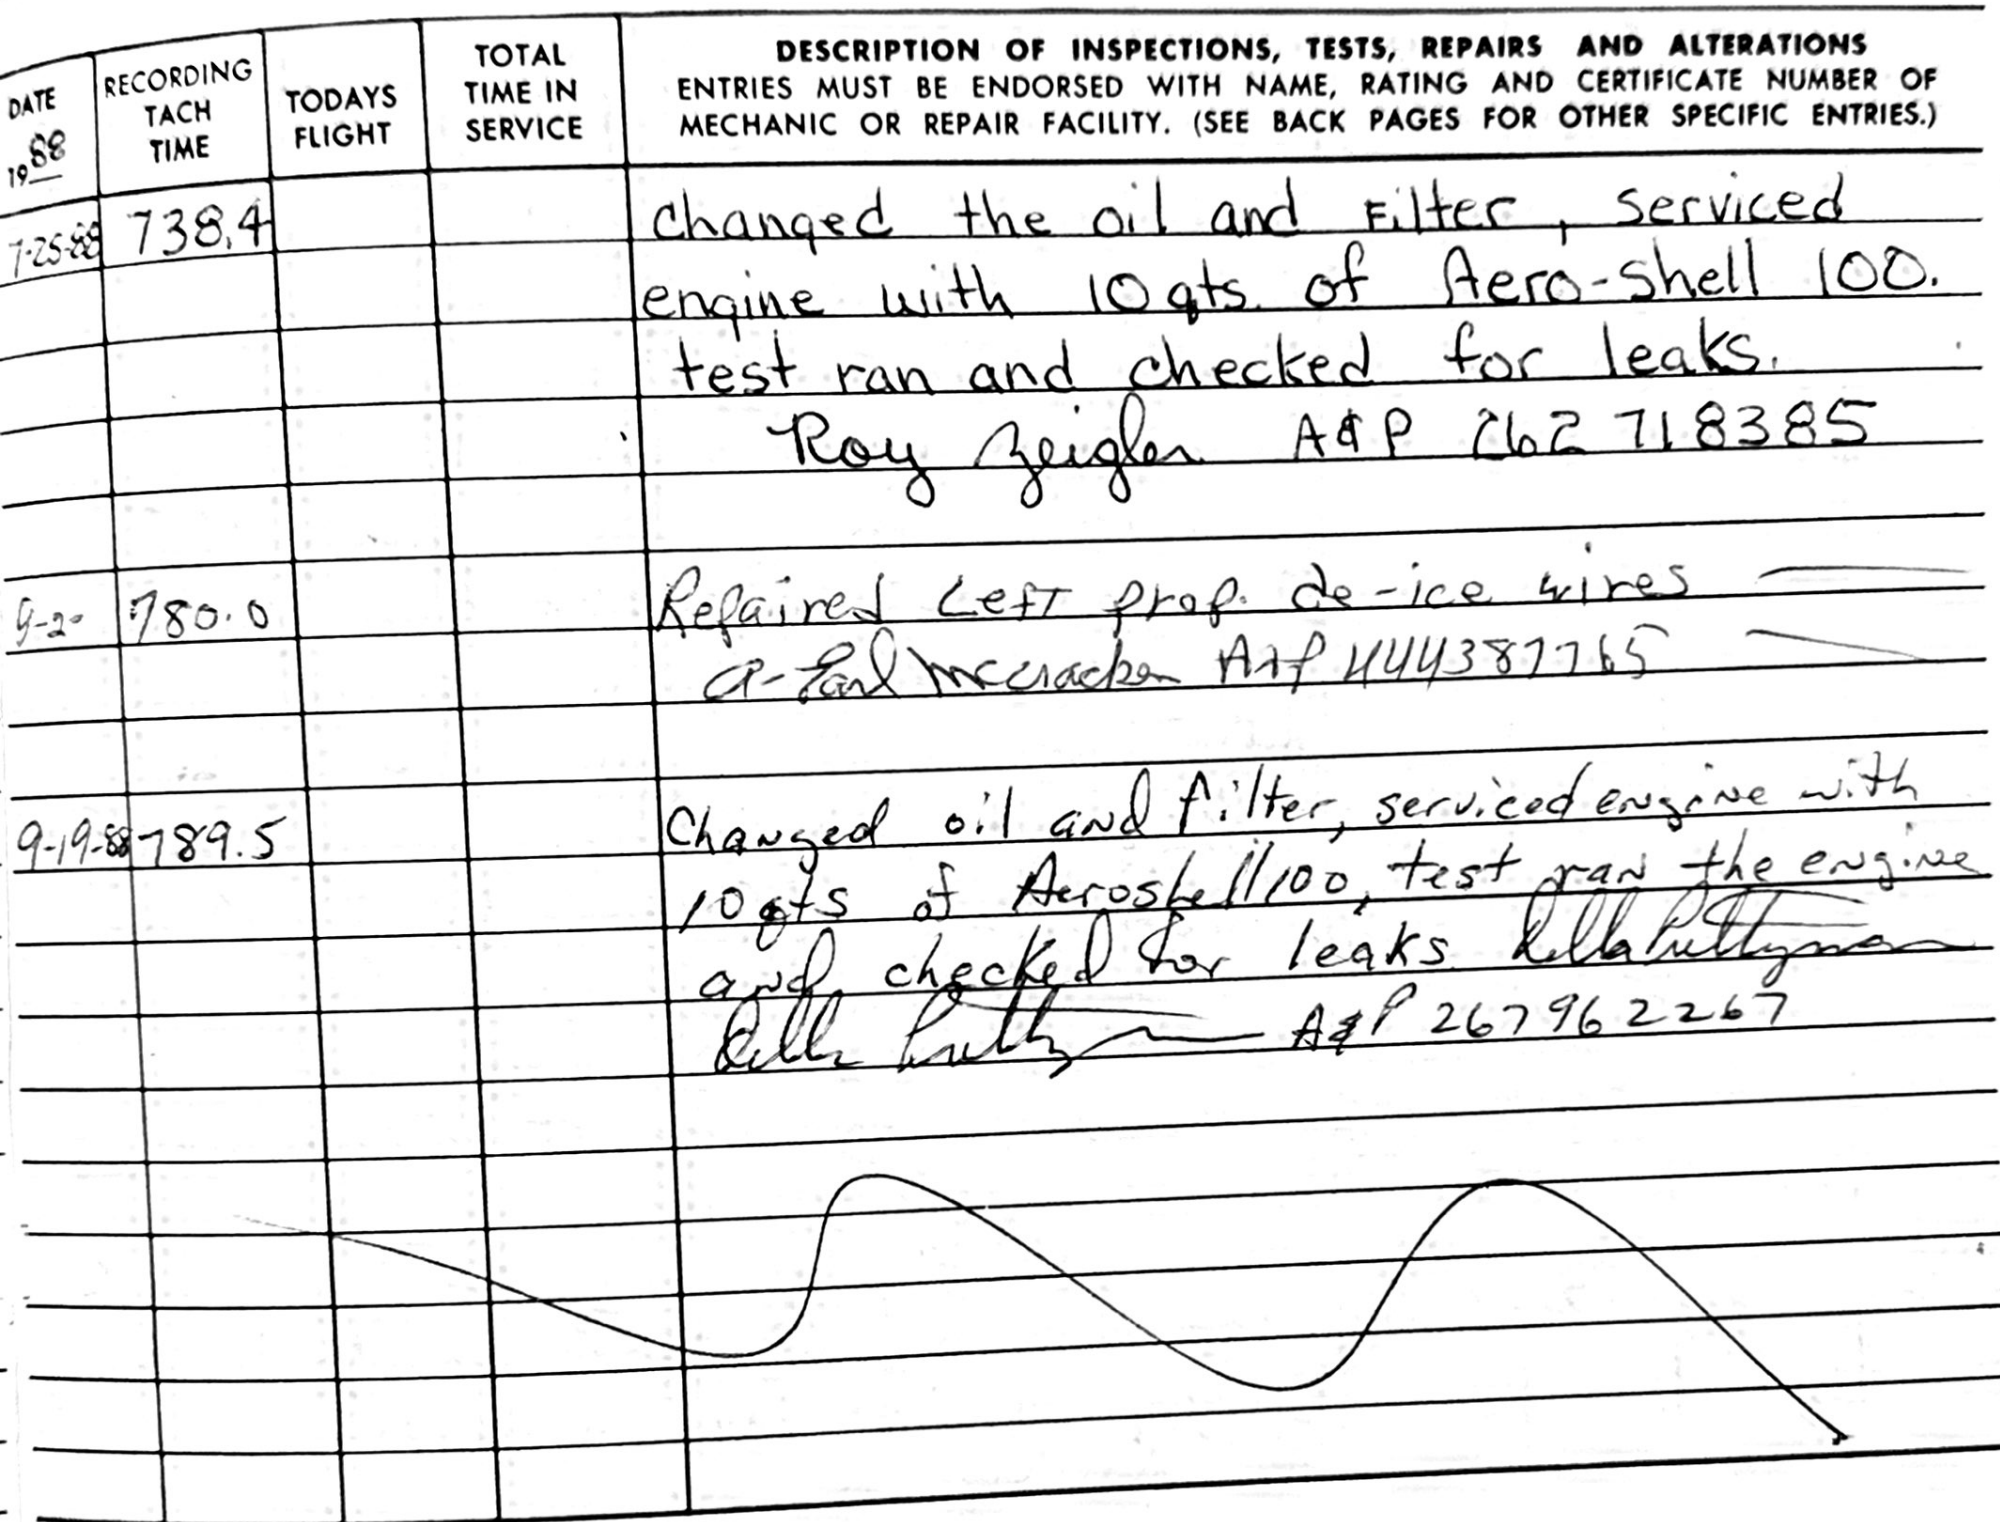 DATE
1988
RECORDING
TACH
TIME
TODAYS
FLIGHT
TOTAL
TIME IN
SERVICE
DESCRIPTION OF INSPECTIONS, TESTS, REPAIRS AND ALTERATIONS
ENTRIES MUST BE ENDORSED WITH NAME, RATING AND CERTIFICATE NUMBER OF
MECHANIC OR REPAIR FACILITY. (SEE BACK PAGES FOR OTHER SPECIFIC ENTRIES.)
7-25-88 738.4 changed the oil and Filter, serviced
engine with 10 qts. of Aero-Shell 100.
test ran and checked for leaks.
Roy Zeigler A&P 262 718385
9-2- 780.0 Repaired Left prop. de-ice wires
McCracken A&P
9-19-88 789.5 Changed oil and filter, serviced engine with
10 qts of Aeroshell 100, test ran the engine
and checked for leaks
A&P 267962267